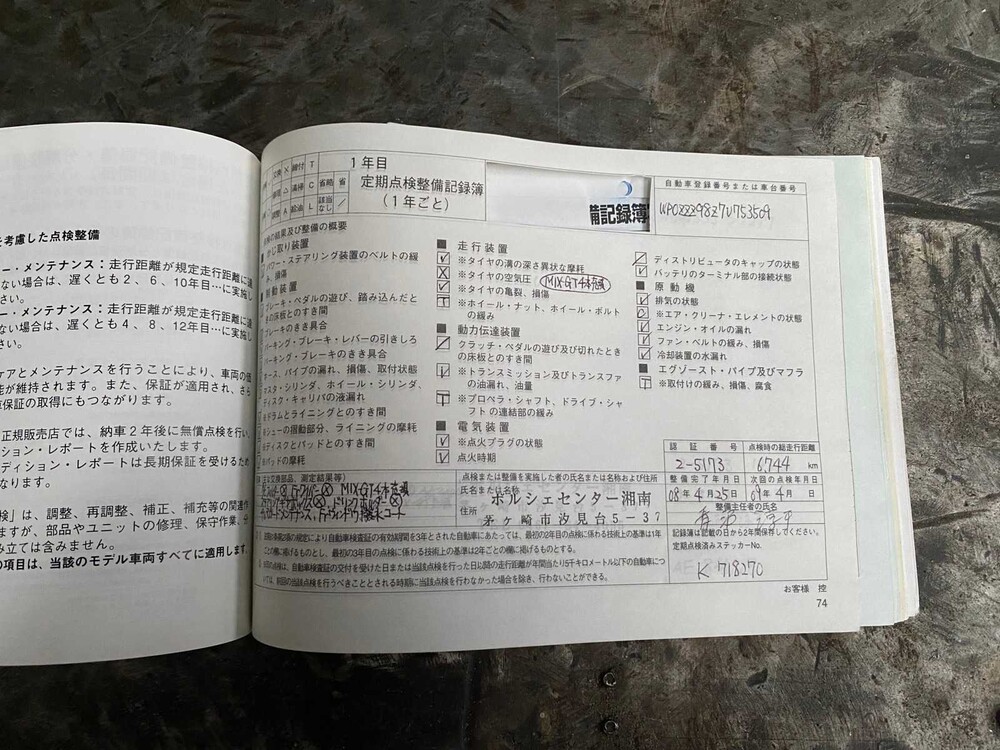 を考慮した点検整備
ー・メンテナンス：走行距離が規定走行距離に
ない場合は、遅くとも2、6、10年目…に実施し
さい。
ー・メンテナンス：走行距離が規定走行距離に
ない場合は、遅くとも4、8、12年目…に実施し
い。
ケアとメンテナンスを行うことにより、車両の価
能が維持されます。また、保証が適用され、さら
保証の取得にもつながります。
正規販売店では、納車2年後に無償点検を行い、
ション・レポートを作成いたします。
ディション・レポートは長期保証を受けるため
なります。
検」は、調整、再調整、補正、補充等の関連作
ますが、部品やユニットの修理、保守作業、分
み立ては含みません。
の項目は、当該のモデル車両すべてに適用します。
1年目
定期点検整備記録簿
（1年ごと）
備記録簿
自動車登録番号または車台番号
WP0ZZZ98Z7U753509
の結果及び整備の概要
かじ取り装置
パワー・ステアリング装置のベルトの緩
み、損傷
制動装置
ブレーキ・ペダルの遊び、踏み込んだと
きの床板とのすき間
ブレーキのきき具合
パーキング・ブレーキ・レバーの引きしろ
パーキング・ブレーキのきき具合
ホース、パイプの漏れ、損傷、取付状態
マスタ・シリンダ、ホイール・シリンダ、
ディスク・キャリパの液漏れ
※ドラムとライニングとのすき間
※シューの摺動部分、ライニングの摩耗
※ディスクとパッドとのすき間
※パッドの摩耗
■ 走行装置
※タイヤの溝の深さ異状な摩耗
※タイヤの空気圧 MIX-GT4本充填
※タイヤの亀裂、損傷
※ホイール・ナット、ホイール・ボルト
の緩み
■ 動力伝達装置
クラッチ・ペダルの遊び及び切れたとき
の床板とのすき間
※トランスミッション及びトランスファ
の油漏れ、油量
※プロペラ・シャフト、ドライブ・シャ
フトの連結部の緩み
■ 電気装置
※点火プラグの状態
点火時期
ディストリビュータのキャップの状態
バッテリのターミナル部の接続状態
■ 原動機
排気の状態
※エア・クリーナ・エレメントの状態
エンジン・オイルの漏れ
ファン・ベルトの緩み、損傷
冷却装置の水漏れ
■ エグゾースト・パイプ及びマフラ
※取付けの緩み、損傷、腐食
認証番号 点検時の総走行距離
2-5173 6744 km
整備完了年月日 次回の点検年月日
08年4月25日 09年4月 日
整備主任者の氏名
主な交換部品、測定結果等）
MIX-GT4本充填
点検または整備を実施した者の氏名または名称および住所
氏名または名称
ポルシェセンター湘南
住所
茅ヶ崎市汐見台5－37
記録簿は記載の日から2年間保存してください。
定期点検済みステッカーNo.
K 718270
お客様 控
74